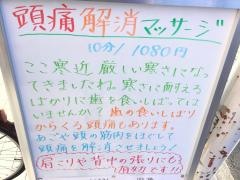 頭痛解消マッサージ
10分/1080円
ここ最近厳しい寒さになっ
てきましたね。寒さに耐える
ばかりに歯を食いしばってしま
いませんか?歯の食いしばり
からくる頭痛もあります。
あごや頭の筋肉をほぐして
頭痛を解消させましょう!
肩こりや背中の張りにも
有効です!!